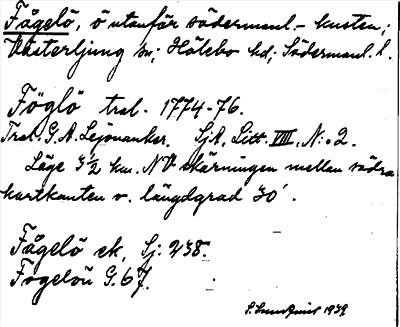 Fågelö, ö utanför södermanl.- kusten;
Västerljung sn; Hölebo hd; Södermanl. l.
Föglö tral. 1774-76.
Tral. G. A. Lejonanker. SjA, Litt. VIII, N:o 2.
Läge 3 1/2 km. NV skärningen mellan södra
kartkanten o. längdgrad 30'.
Fågelö ek, Sj: 238.
Fogelöu G. 67.
S. Sundquist 1939